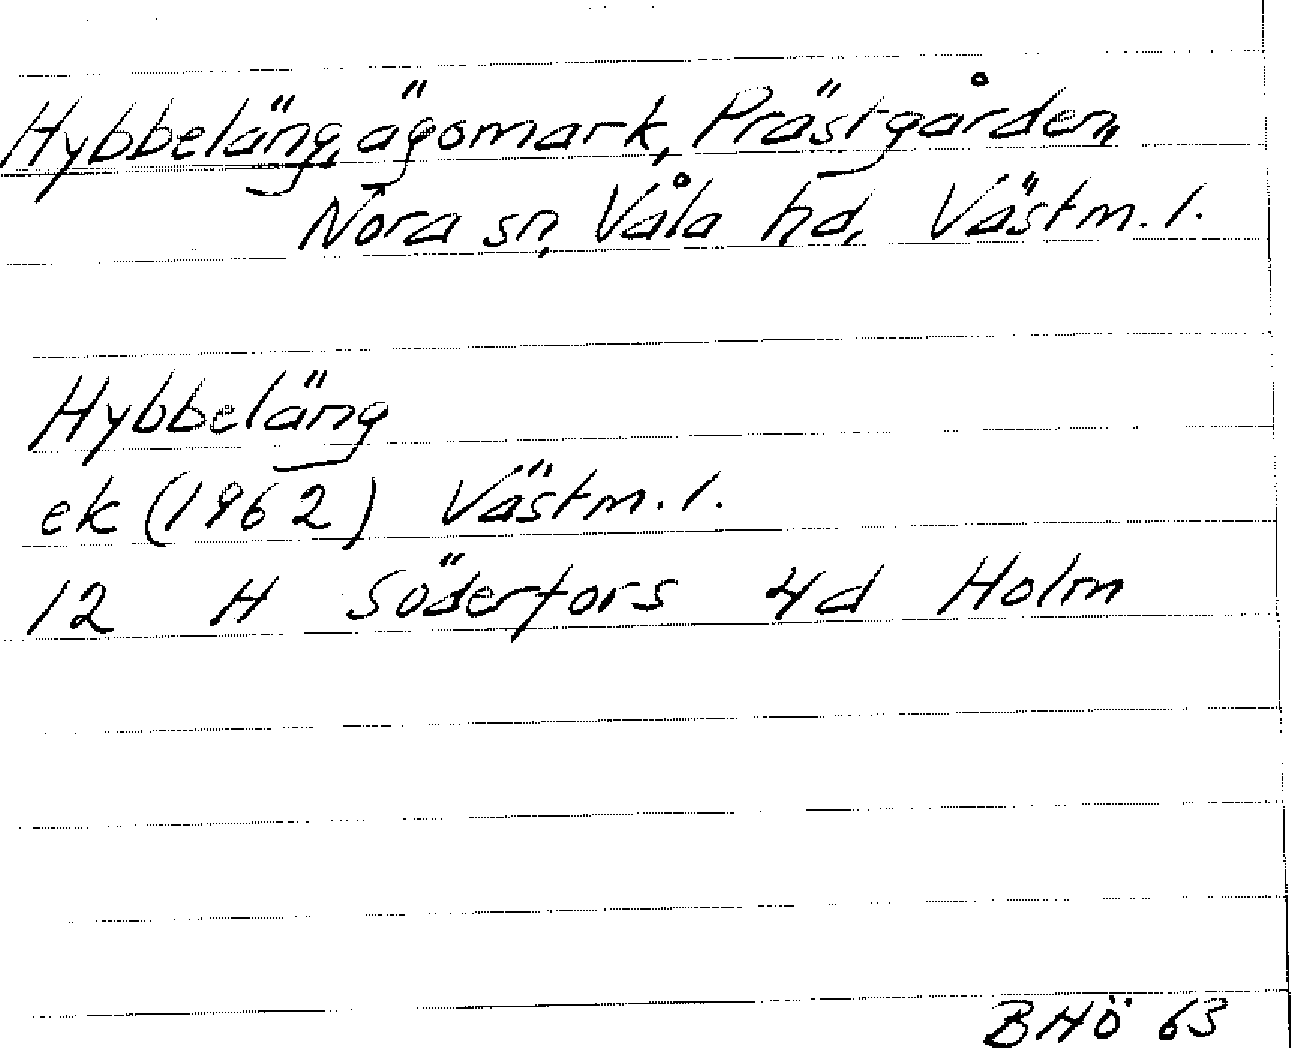 Hybbeläng, ägomark, Prästgården,
Nora sn, Våla hd, Västm. l.
Hybbeläng
ek (1962) Västm. l.
12 H Söderfors 4d Holm
BHö 63